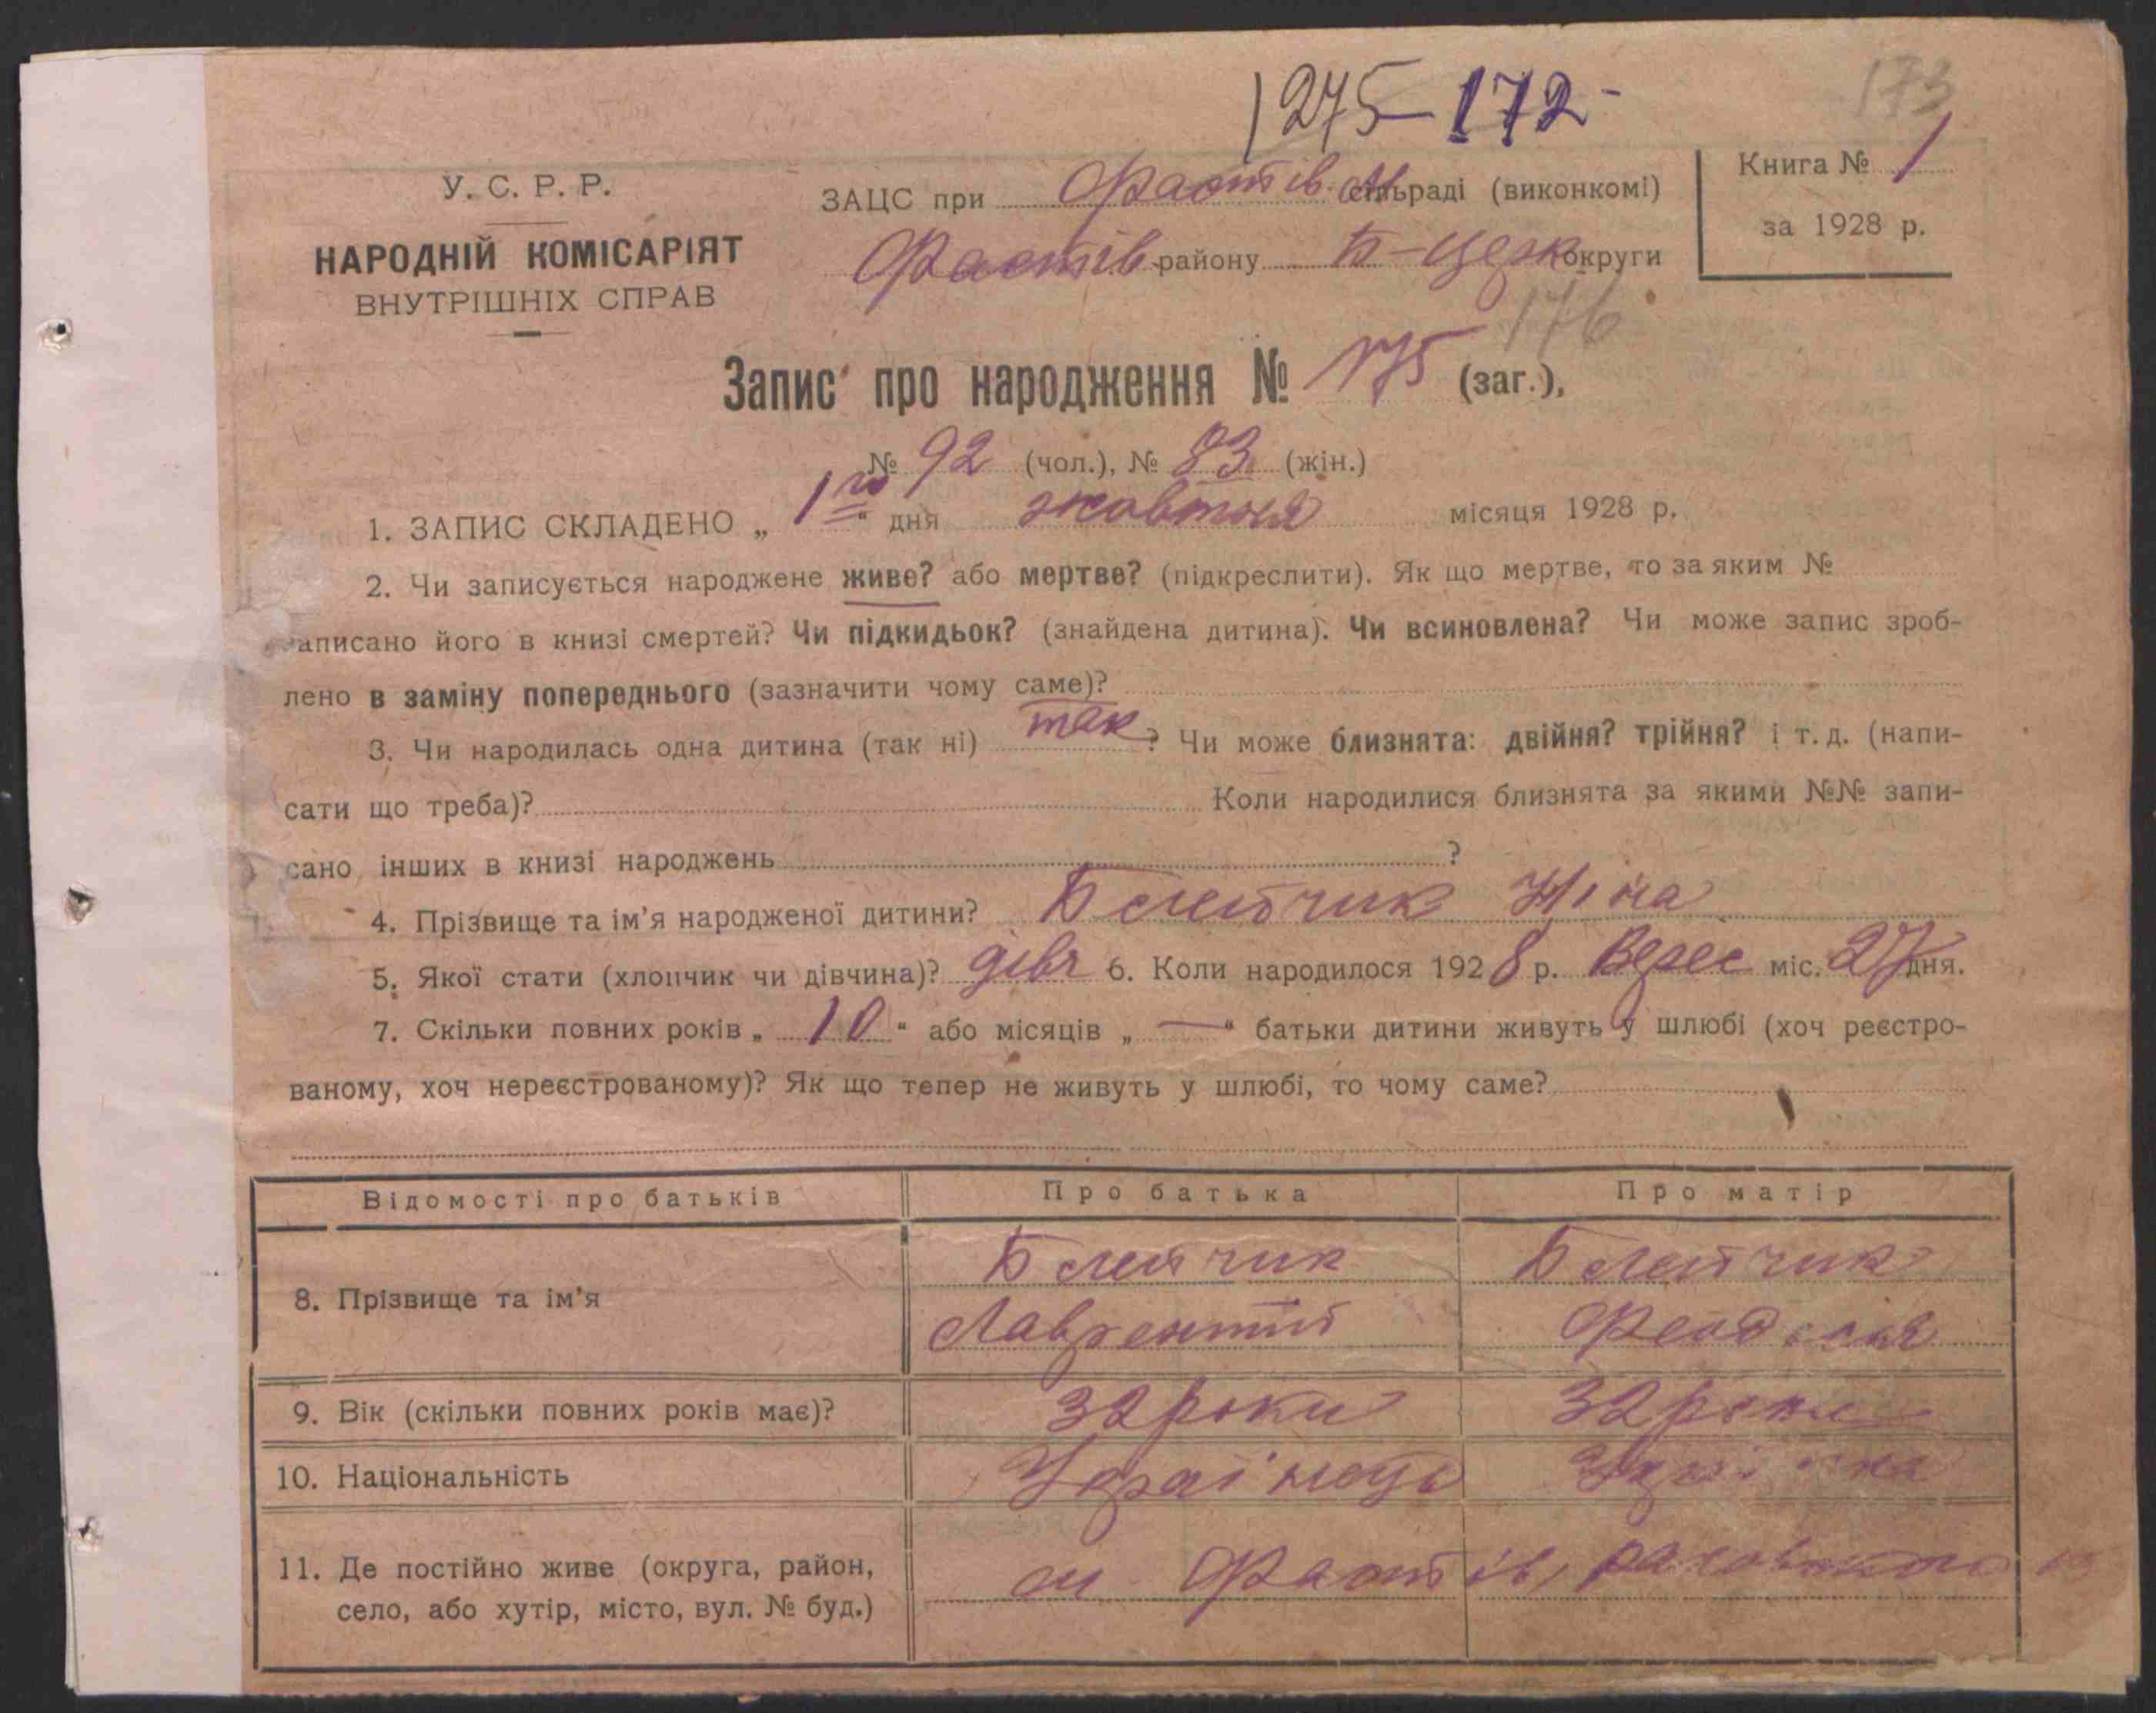 1275-172-
173
У. С. Р. Р.
НАРОДНІЙ КОМІСАРІЯТ
ВНУТРІШНІХ СПРАВ
ЗАЦС при Фастів. сільраді (виконкомі)
Фастів району Б-Церк округи
Книга № 1
за 1928 р.
176
Запис про народження № 175 (заг.),
№ 92 (чол.), № 83 (жін.)
1. ЗАПИС СКЛАДЕНО „ 1го " дня жовтня місяця 1928 р.
2. Чи записується народжене живе? або мертве? (підкреслити). Як що мертве, то за яким №
записано його в книзі смертей? Чи підкидьок? (знайдена дитина). Чи всиновлена? Чи може запис зроб-
лено в заміну попереднього (зазначити чому саме)?
3. Чи народилась одна дитина (так ні) так ? Чи може близнята: двійня? трійня? і т. д. (напи-
сати що треба)? Коли народилися близнята за якими №№ запи-
сано інших в книзі народжень ?
4. Прізвище та ім'я народженої дитини? Ніна
5. Якої стати (хлопчик чи дівчина)? дівч 6. Коли народилося 1928 р. Верес міс. 27 дня.
7. Скільки повних років „ 10 " або місяців „ — " батьки дитини живуть у шлюбі (хоч реєстро-
ваному, хоч нереєстрованому)? Як що тепер не живуть у шлюбі, то чому саме?
Відомості про батьків Про батька Про матір
8. Прізвище та ім'я
Лаврентій
9. Вік (скільки повних років має)? 32 роки 32 роки
10. Національність Українець Українка
11. Де постійно живе (округа, район,
село, або хутір, місто, вул. № буд.)
м. Фастів,